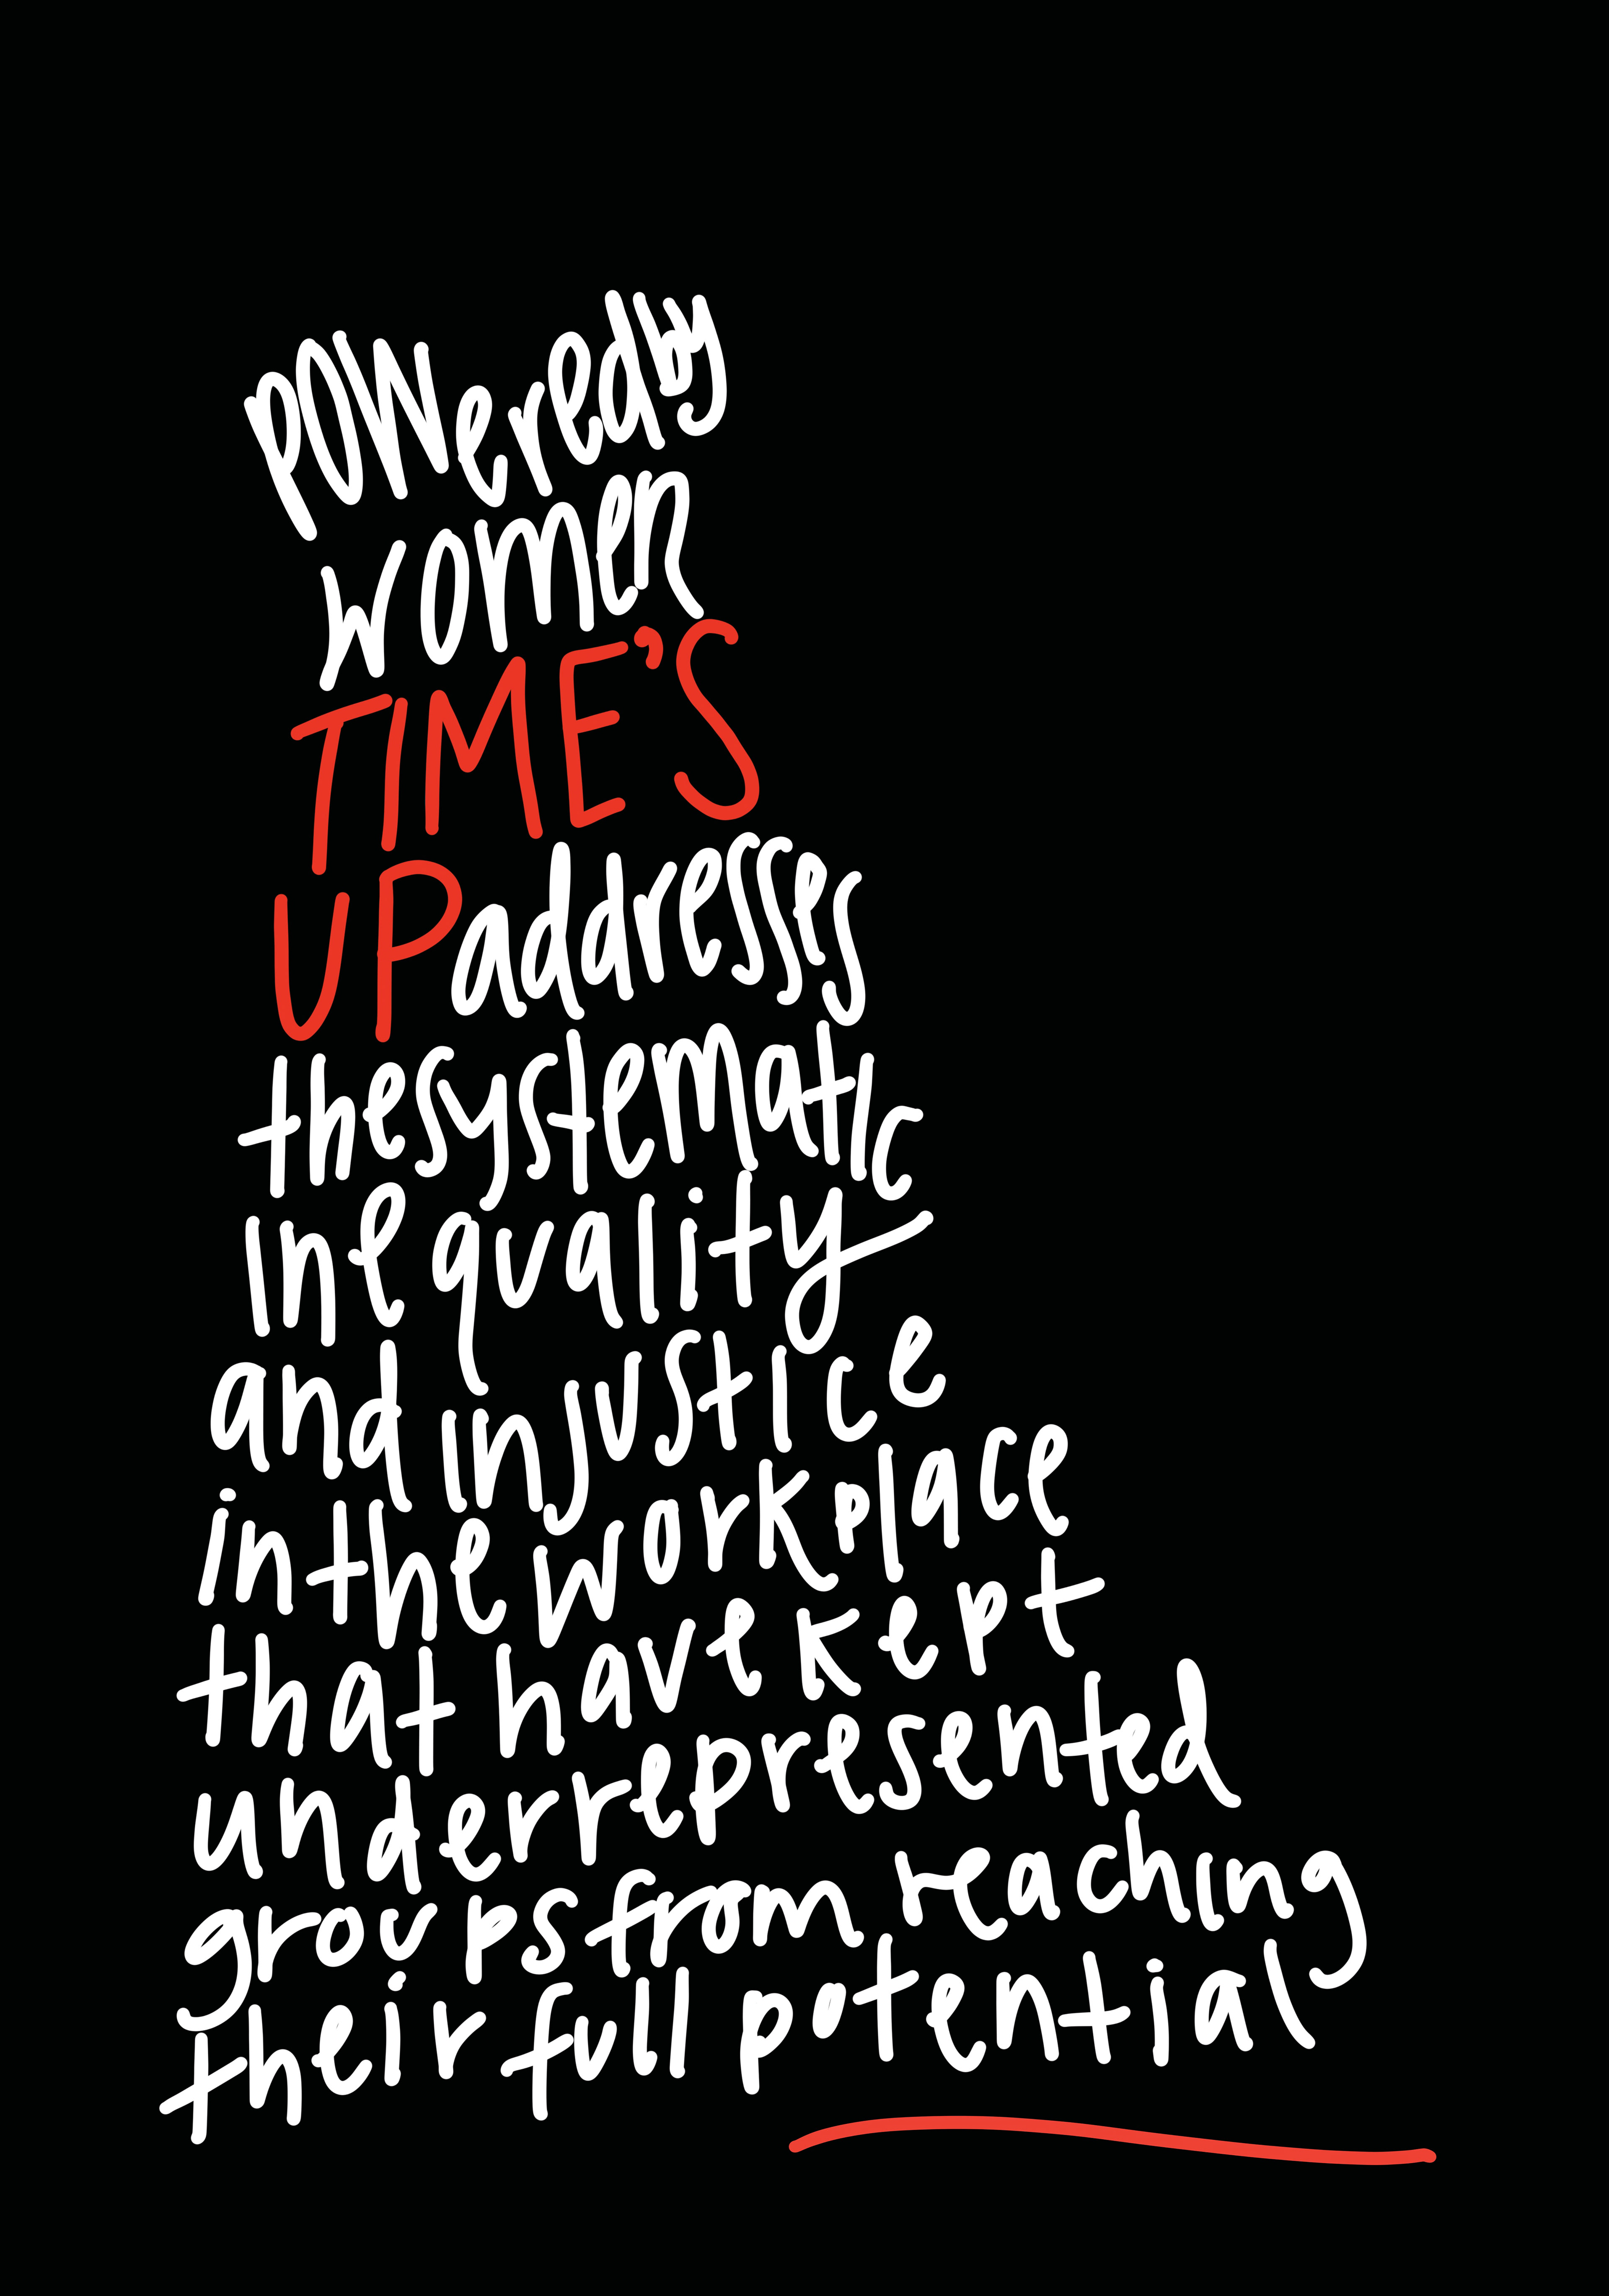 poWeredby
women
TIME'S
UP addresses
the systematic
inequality
and injustice
in the workplace
that have kept
underrepresented
groups from reaching
their full potential